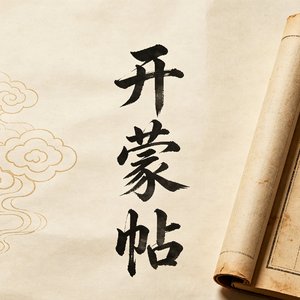 开蒙帖